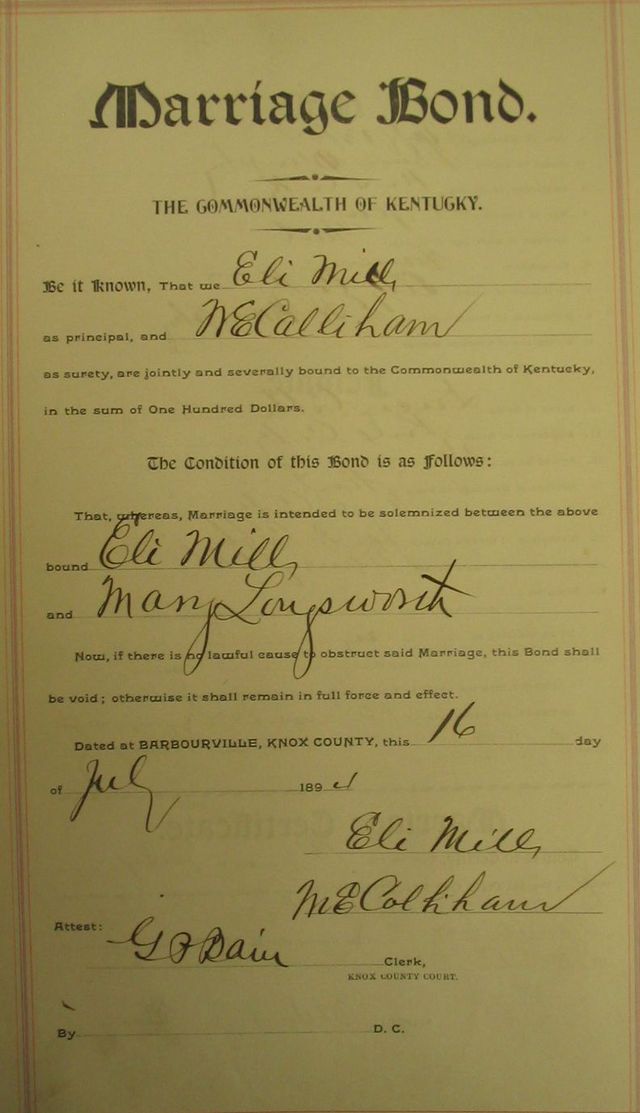 Marriage Bond.
THE COMMONWEALTH OF KENTUCKY.
Be it Known, That we Eli Mills
as principal, and W E Calliham
as surety, are jointly and severally bound to the Commonwealth of Kentucky,
in the sum of One Hundred Dollars.
The Condition of this Bond is as Follows:
That, whereas, Marriage is intended to be solemnized between the above
bound Eli Mills
and Mary Longsworth
Now, if there is no lawful cause to obstruct said Marriage, this Bond shall
be void; otherwise it shall remain in full force and effect.
Dated at BARBOURVILLE, KNOX COUNTY, this 16 day
of July 189
Eli Mills
Calliham
Attest:
Clerk,
KNOX COUNTY COURT.
By D. C.